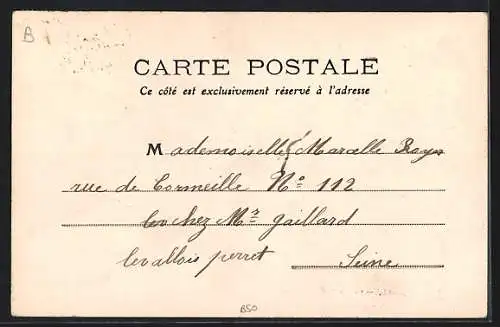 B
CARTE POSTALE
Ce côté est exclusivement réservé à l'adresse
Mademoiselle Marcelle
rue de Cormeille Nº 112
chez Mr Gaillard
levallois perret Seine
B50